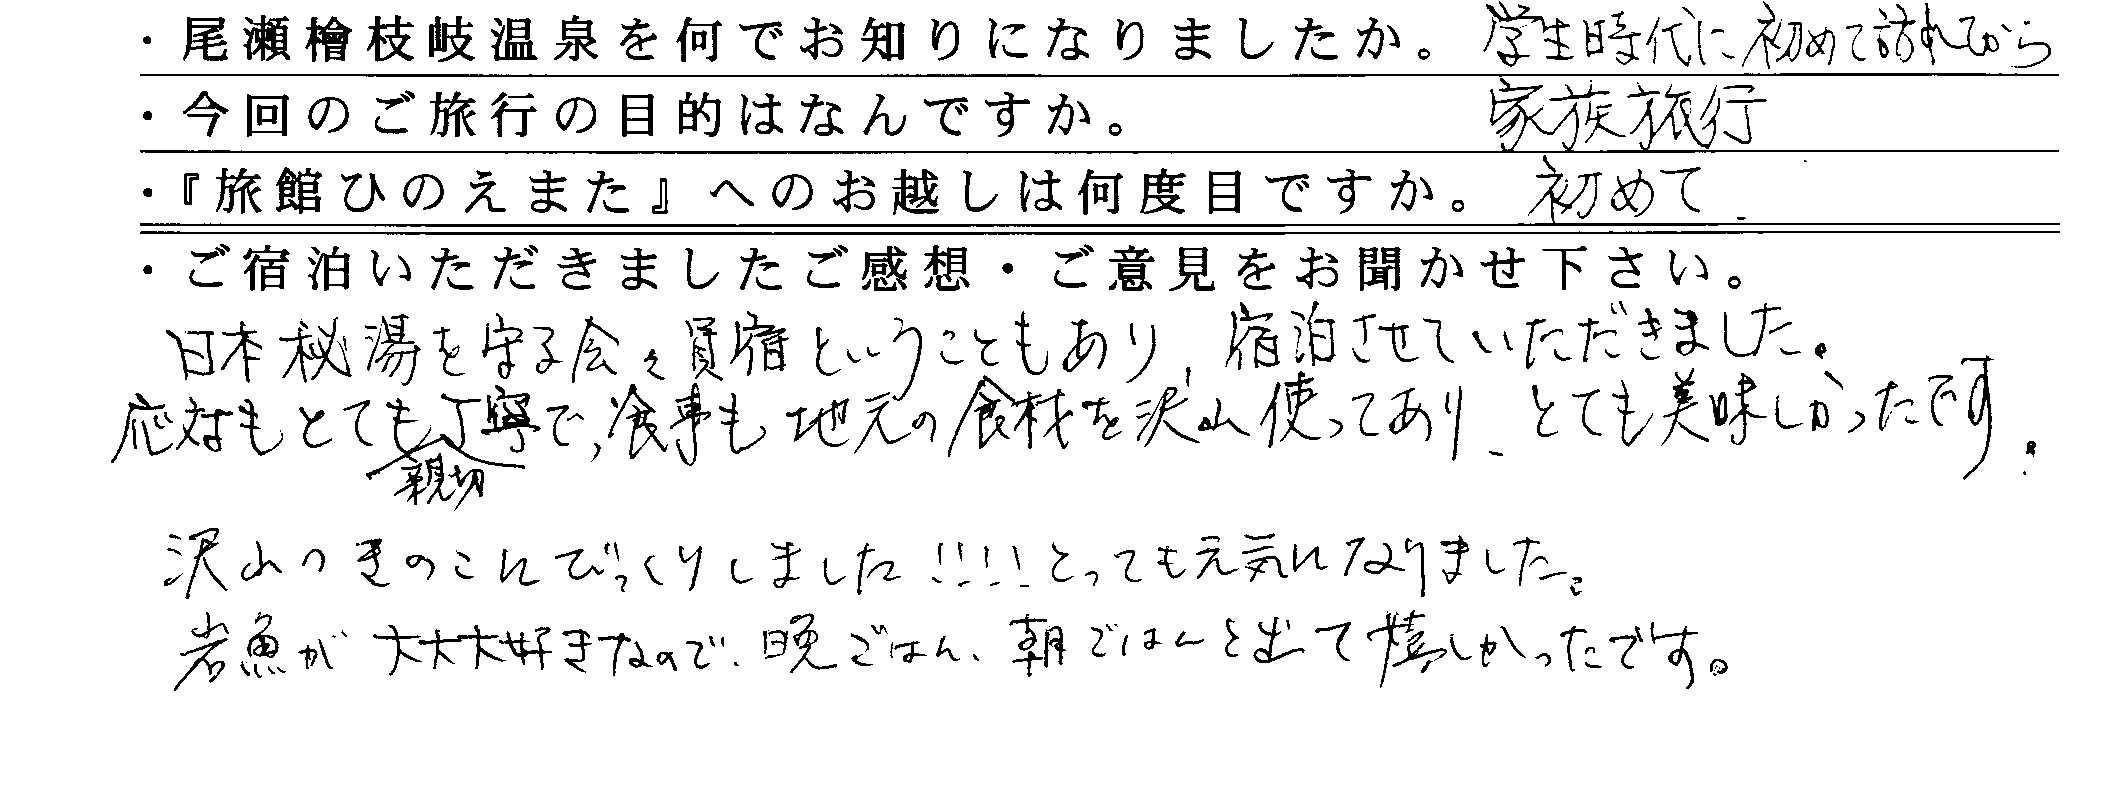 ・尾瀬檜枝岐温泉を何でお知りになりましたか。 学生時代に初めて訪れてから
・今回のご旅行の目的はなんですか。 家族旅行
・『旅館ひのえまた』へのお越しは何度目ですか。 初めて
・ご宿泊いただきましたご感想・ご意見をお聞かせ下さい。
日本秘湯を守る会々員宿ということもあり、宿泊させていただきました。
応対もとても丁寧で、食事も地元の食材を沢山使ってあり、とても美味しかったです。
親切
沢山のきのこにびっくりしました!!!!とっても元気になりました。
岩魚が大大大好きなので、晩ごはん、朝ごはんと出て嬉しかったです。